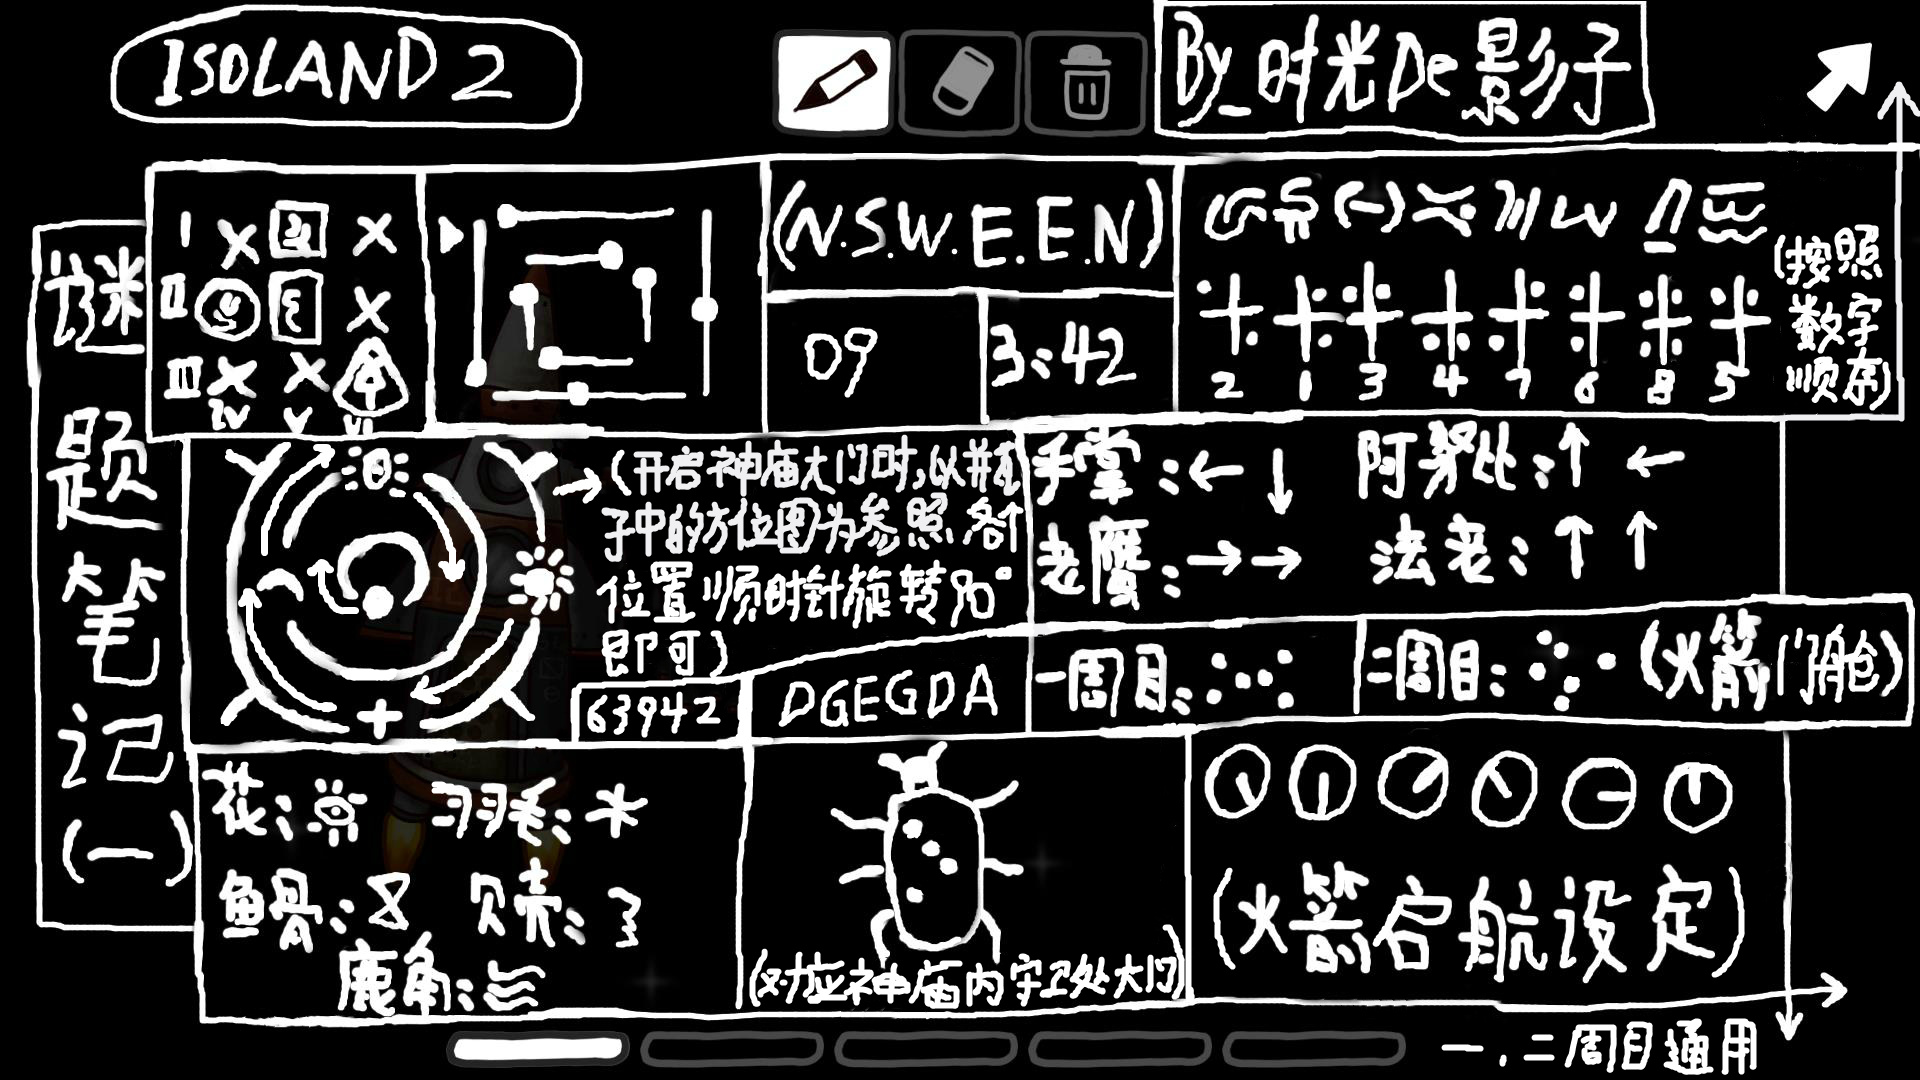 ISOLAND 2
By_时光De影子
谜题笔记(一)
I X X
II X
III X X
IV V VI
(N.S.W.E.E.N)
09
3:42
2 1 3 4 7 6 8 5
(按照
数字
顺序)
(开启神庙大门时,以并在
子中的方位图为参照各个
位置顺时针旋转90°
即可)
63942
DGEGDA
手掌:← ↓
阿努比:↑ ←
老鹰:→→
法老:↑ ↑
一周目:
二周目:
(火箭门舱)
花: 羽毛:
鱼骨: 贝壳:
鹿角:
(对应神庙内 处大门)
(火箭启航设定)
一.二周目通用